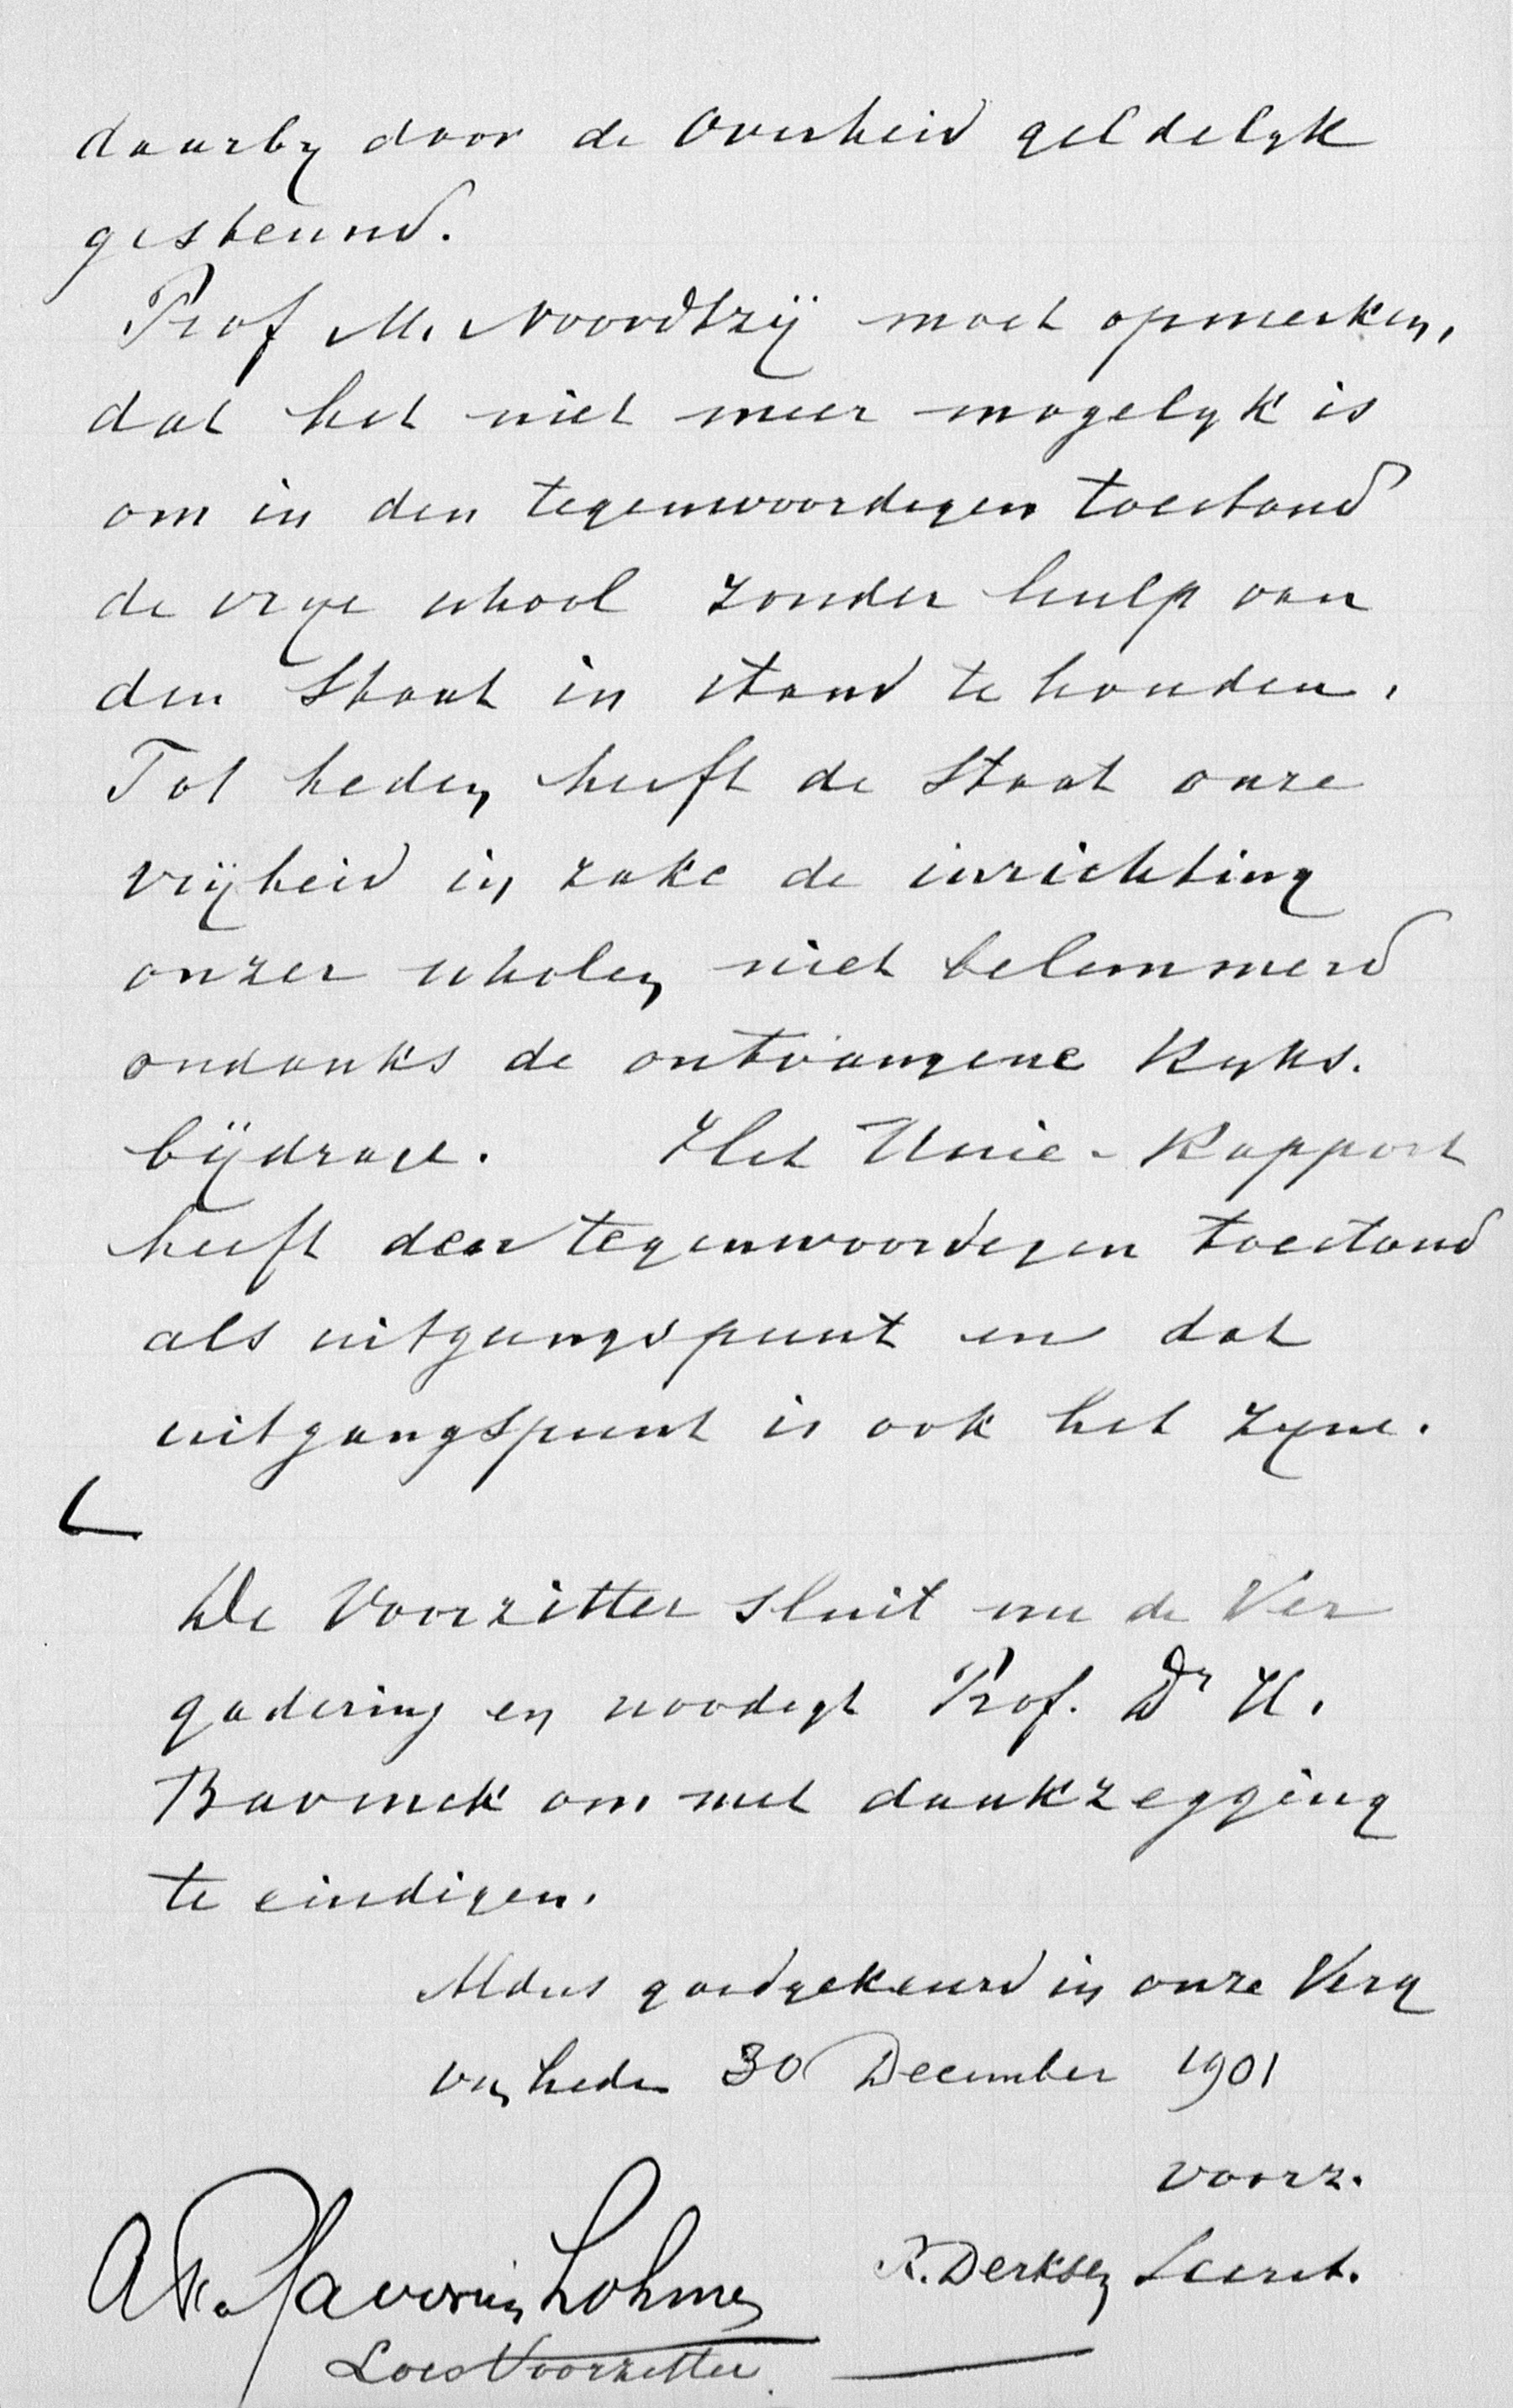 daarby door de Overheid geldelyk
gesteund.
Prof M. Noordtzij moet opmerken,
dat het niet meer mogelyk is
om in den tegenwoordigen toestand
de vrye school zonder hulp van
den Staat in stand te houden.
Tot heden heeft de Staat onze
vrijheid in zake de inrichting
onzer scholen niet belemmerd
ondanks de ontvangene Ryks.
bijdrage. Het Unie-Rapport
heeft den tegenwoordigen toestand
als uitgangspunt en dat
uitgangspunt is ook het zyne.
De Voorzitter sluit nu de Ver
gadering en noodigt Prof. Dr H.
Bavinck om met dankzegging
te eindigen.
Aldus goedgekeurd in onze Verg
van heden 30 December 1901
voorz.
R. Derksen Secret.
Savornin Lohman
Loco Voorzitter.